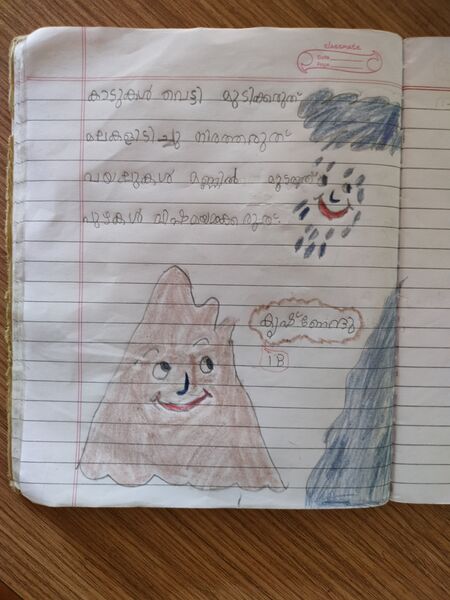 classmate
Date
Page
കാടുകൾ വെട്ടി മുടിക്കരുത്
മലകളിടിച്ചു നിരത്തരുത്
വയലുകൾ മണ്ണിൽ മൂടരുത്
പുഴകൾ വിഷമയമാക്കരുത്
കൃഷ്ണേന്ദു
1 B